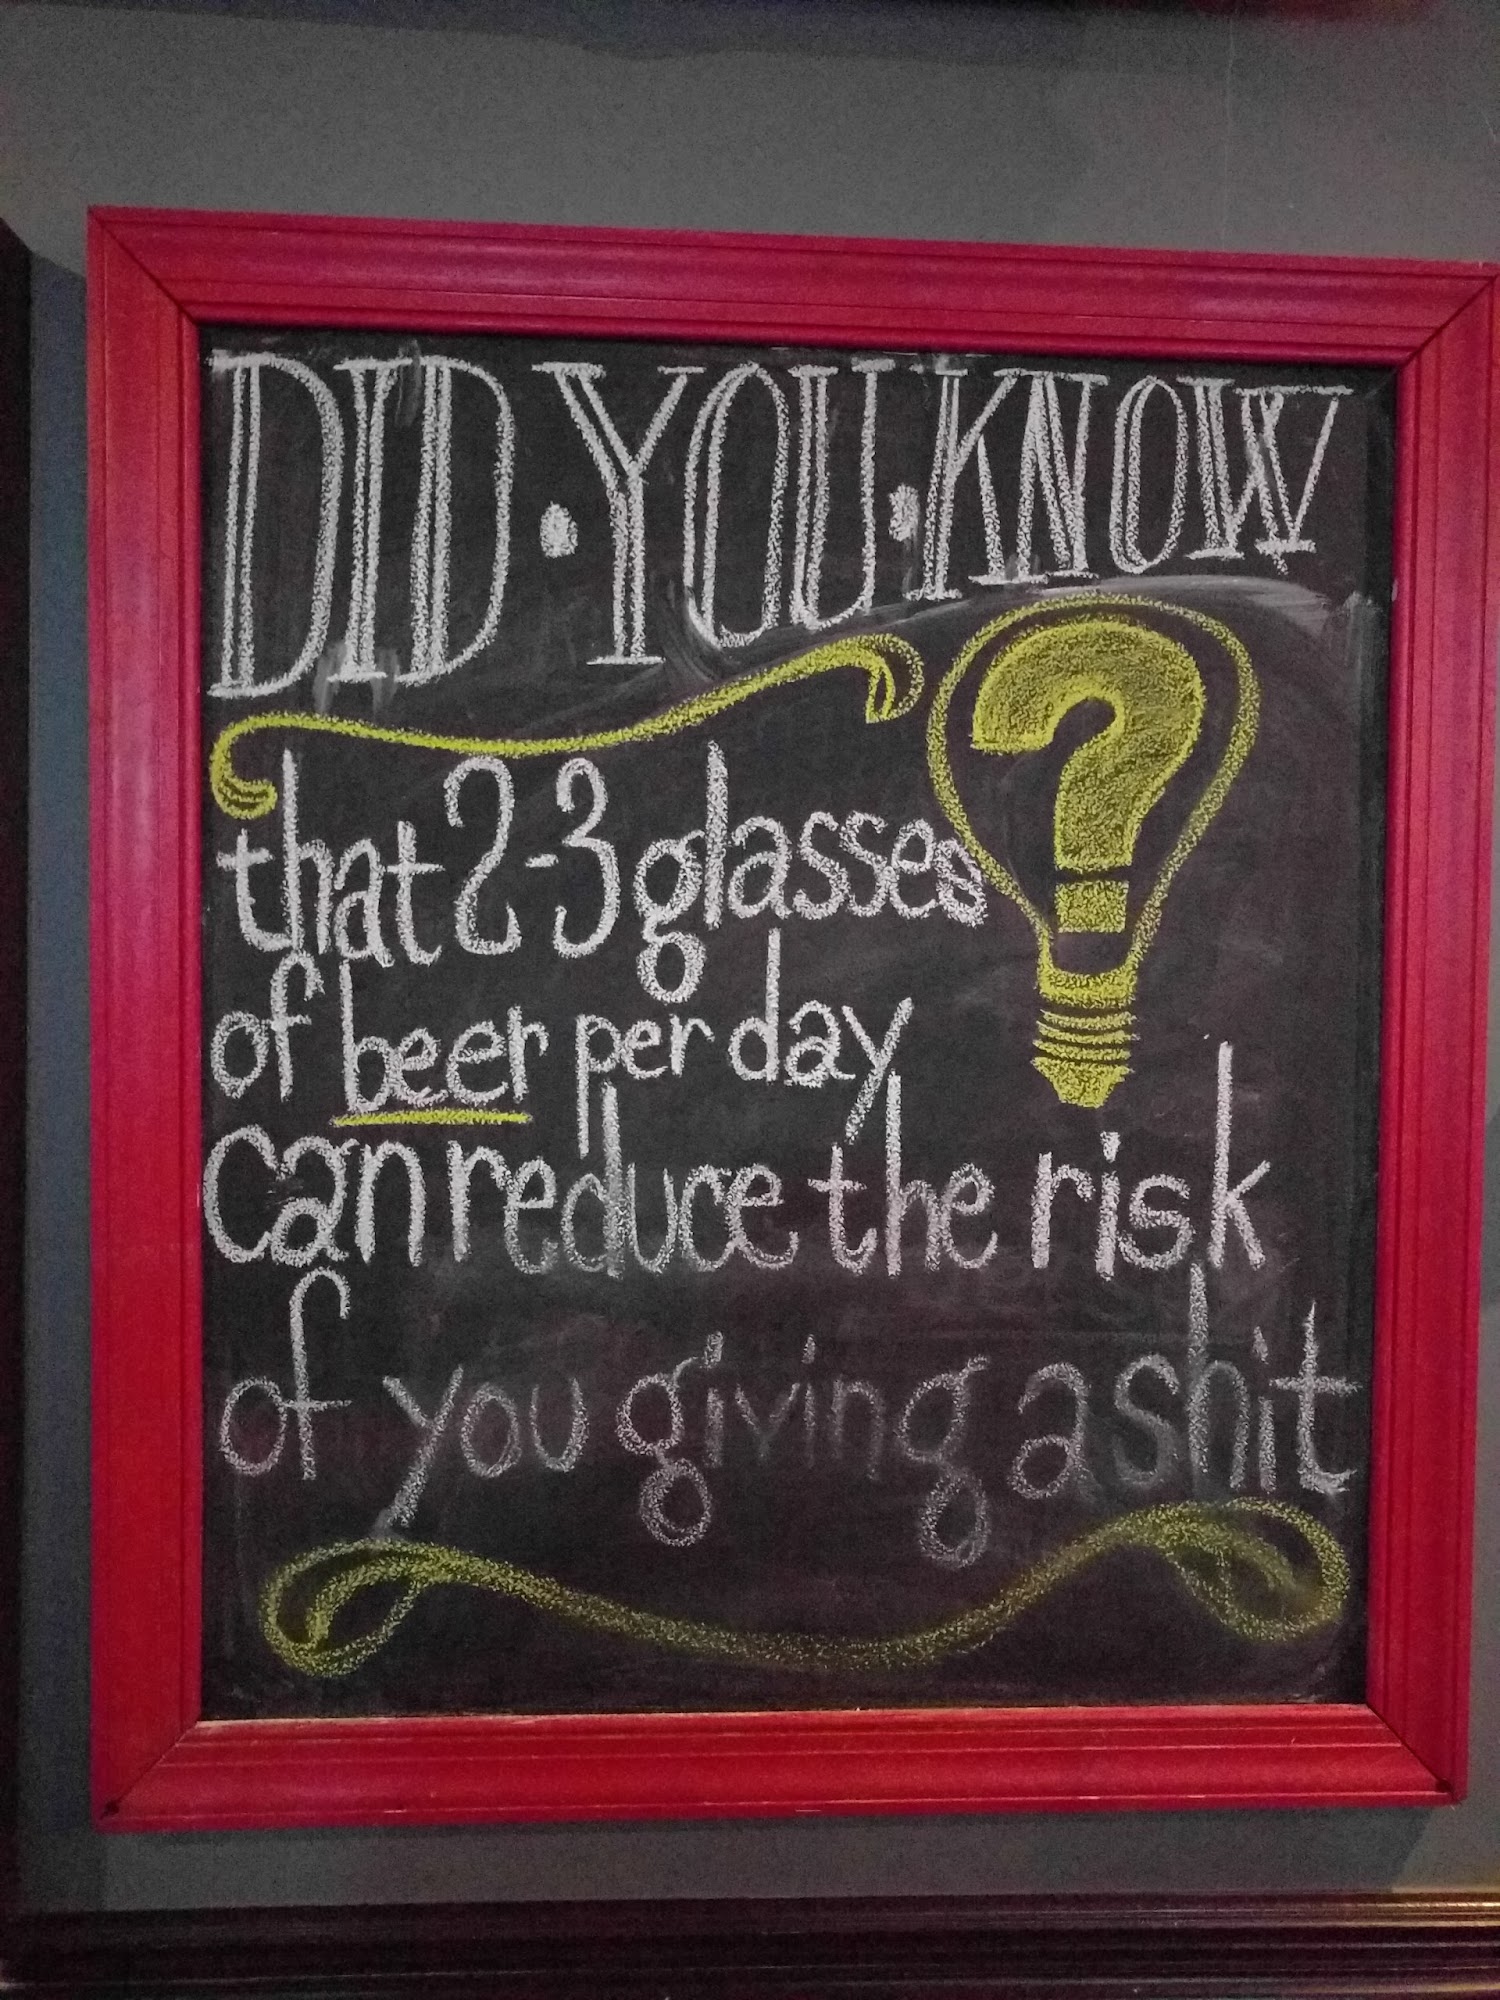 DID·YOU·KNOW
?
that 2-3 glasses
of beer per day
can reduce the risk
of you giving a shit